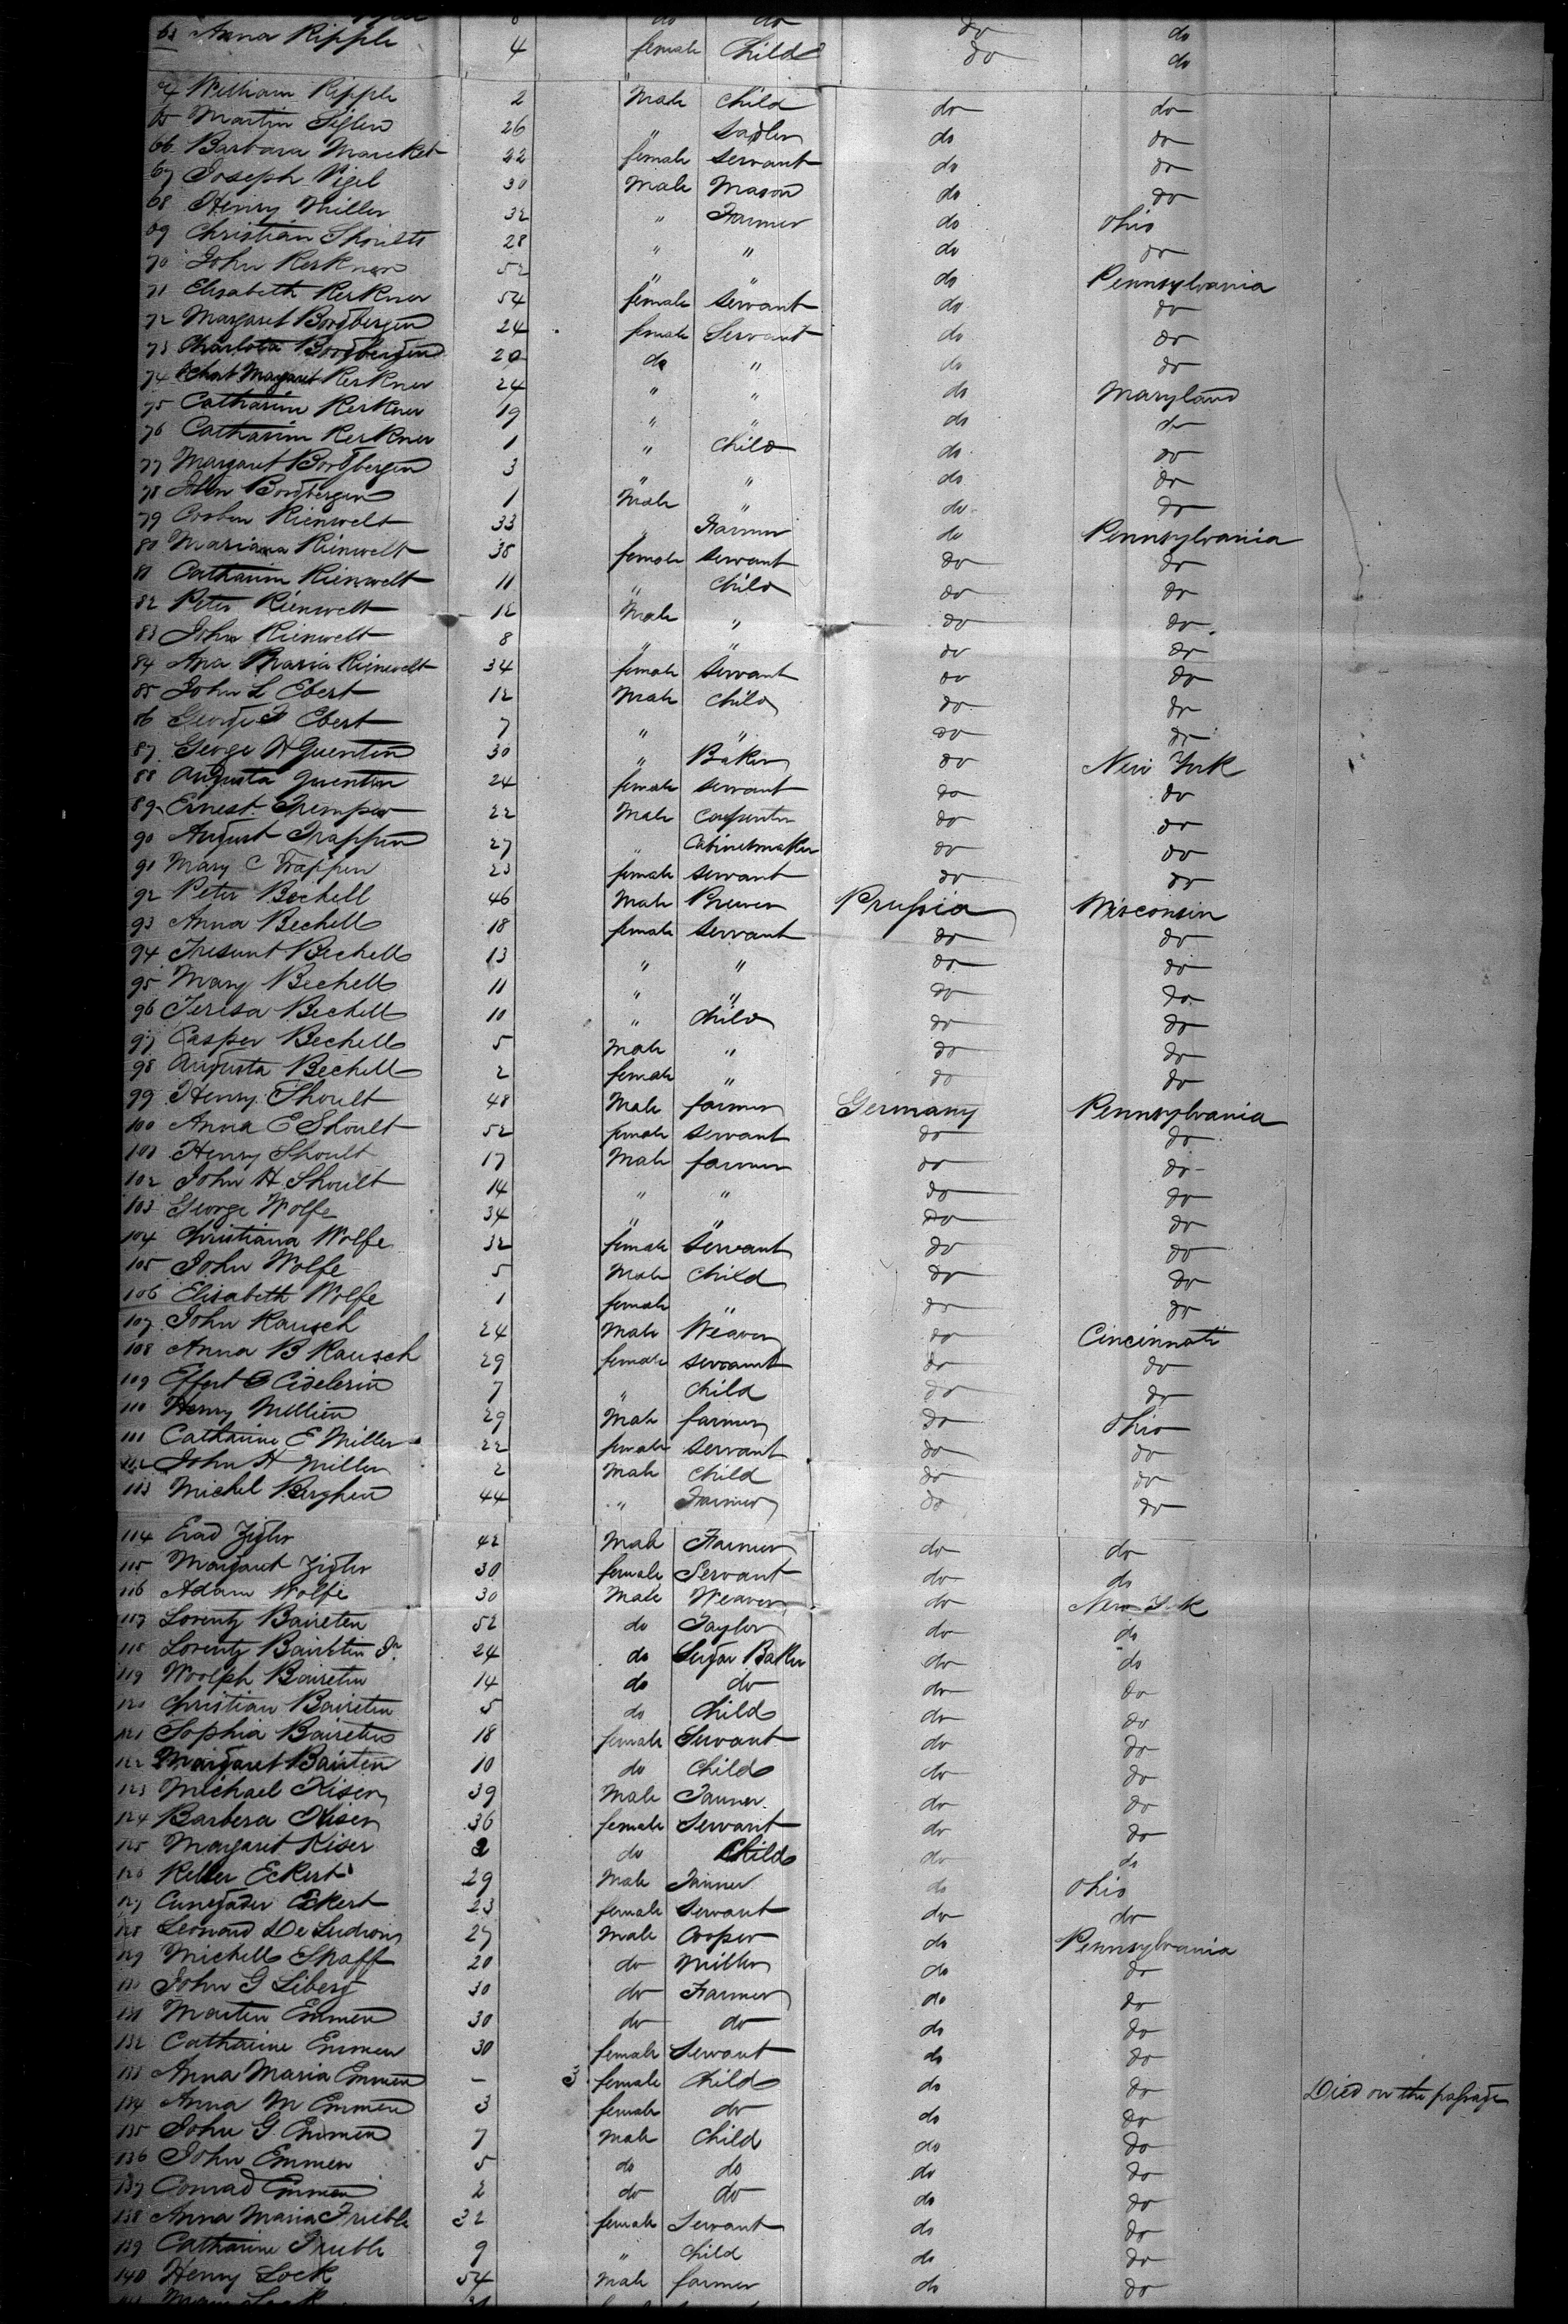 do do do do
63 Anna Ripple 4 female Child do do
64 William Ripple 2 Male Child do do
65 Martin Sigler 26 " Sadler do do
66 Barbara Marcket 22 female Servant do do
67 Joseph Vigel 30 Male Mason do do
68 Henry Miller 32 " Farmer do Ohio
69 Christian Shoults 28 " " do do
70 John Kerkner 52 " " do Pennsylvania
71 Elisabeth Kerkner 54 female Servant do do
72 Margaret Bordbergen 24 female Servant do do
73 Charlota Bordbergen 20 do " do do
74 Margaret Kerkner 24 " " do Maryland
75 Catharine Kerkner 19 " " do do
76 Catharine Kerkner 1 " Child do do
77 Margaret Bordbergen 3 " " do do
78 John Bordbergen 1 Male " do do
79 Rienwelt 33 " Farmer do Pennsylvania
80 Mariana Rienwelt 38 female Servant do do
81 Catharine Rienwelt 11 " Child do do
82 Peter Rienwelt 12 Male " do do
83 John Rienwelt 8 " " do do
84 Ana Maria Rienwelt 34 female Servant do do
85 John L Ebert 12 Male Child do do
86 George F Ebert 7 " " do do
87 George H Quentin 30 " Baker do New York
88 Augusta Quentin 24 female servant do do
89 Ernest Tremper 22 Male Carpenter do do
90 August Trappen 27 " Cabinetmaker do do
91 Mary C Trappen 23 female servant do do
92 Peter Bechell 46 Male Brewer Prussia Wisconsin
93 Anna Bechell 18 female servant do do
94 Bechell 13 " " do do
95 Mary Bechell 11 " " do do
96 Teresa Bechell 10 " Child do do
97 Casper Bechell 5 Male " do do
98 Augusta Bechell 2 female " do do
99 Henry Shoult 48 Male farmer Germany Pennsylvania
100 Anna E Shoult 52 female servant do do
101 Henry Shoult 17 Male farmer do do
102 John H Shoult 14 " " do do
103 George Wolfe 34 " " do do
104 Christiana Wolfe 32 female Servant do do
105 John Wolfe 5 Male Child do do
106 Elisabeth Wolfe 1 female " do do
107 John Rausch 24 Male Weaver do Cincinnati
108 Anna B Rausch 29 female servant do do
109 Effert Ciselerin 7 " Child do do
110 Henry Mellien 29 Male farmer do Ohio
111 Catharine E Miller 22 female servant do do
112 John H Miller 2 Male Child do do
113 Michel Berghen 44 " Farmer do do
114 Erad Zigler 42 Male Farmer do do
115 Margaret Zigler 30 female Servant do do
116 Adam Wolfe 30 Male Weaver do New York
117 Lorentz Baireten 52 do Taylor do do
118 Lorentz Baireten Jr. 24 do Sugar Baker do do
119 Woolph Baireten 14 do do do do
120 Christian Baireten 5 do Child do do
121 Sophia Baireten 18 female Servant do do
122 Margaret Baireten 10 do Child do do
123 Michael Kiser 39 Male Tanner do do
124 Barbera Kiser 36 female Servant do do
125 Margaret Kiser 2 do Child do do
126 Eckert 29 Male do Ohio
127 Eckert 23 female Servant do do
128 Leonard De Ludwig 27 Male Cooper do Pennsylvania
129 Michell Shaff 20 do Miller do do
130 John G Liberg 30 do Farmer do do
131 Martin Emmen 30 do do do do
132 Catharine Emmen 30 female Servant do do
133 Anna Maria Emmen - 3 female Child do do Died on the passage
134 Anna M Emmen 3 female do do do
135 John G. Emmen 7 Male Child do do
136 John Emmen 5 do do do do
137 Conrad Emmen 2 do do do do
138 Anna Maria Frieble 32 female Servant do do
139 Catharine Frieble 9 " Child do do
140 Henry Lock 54 Male farmer do do